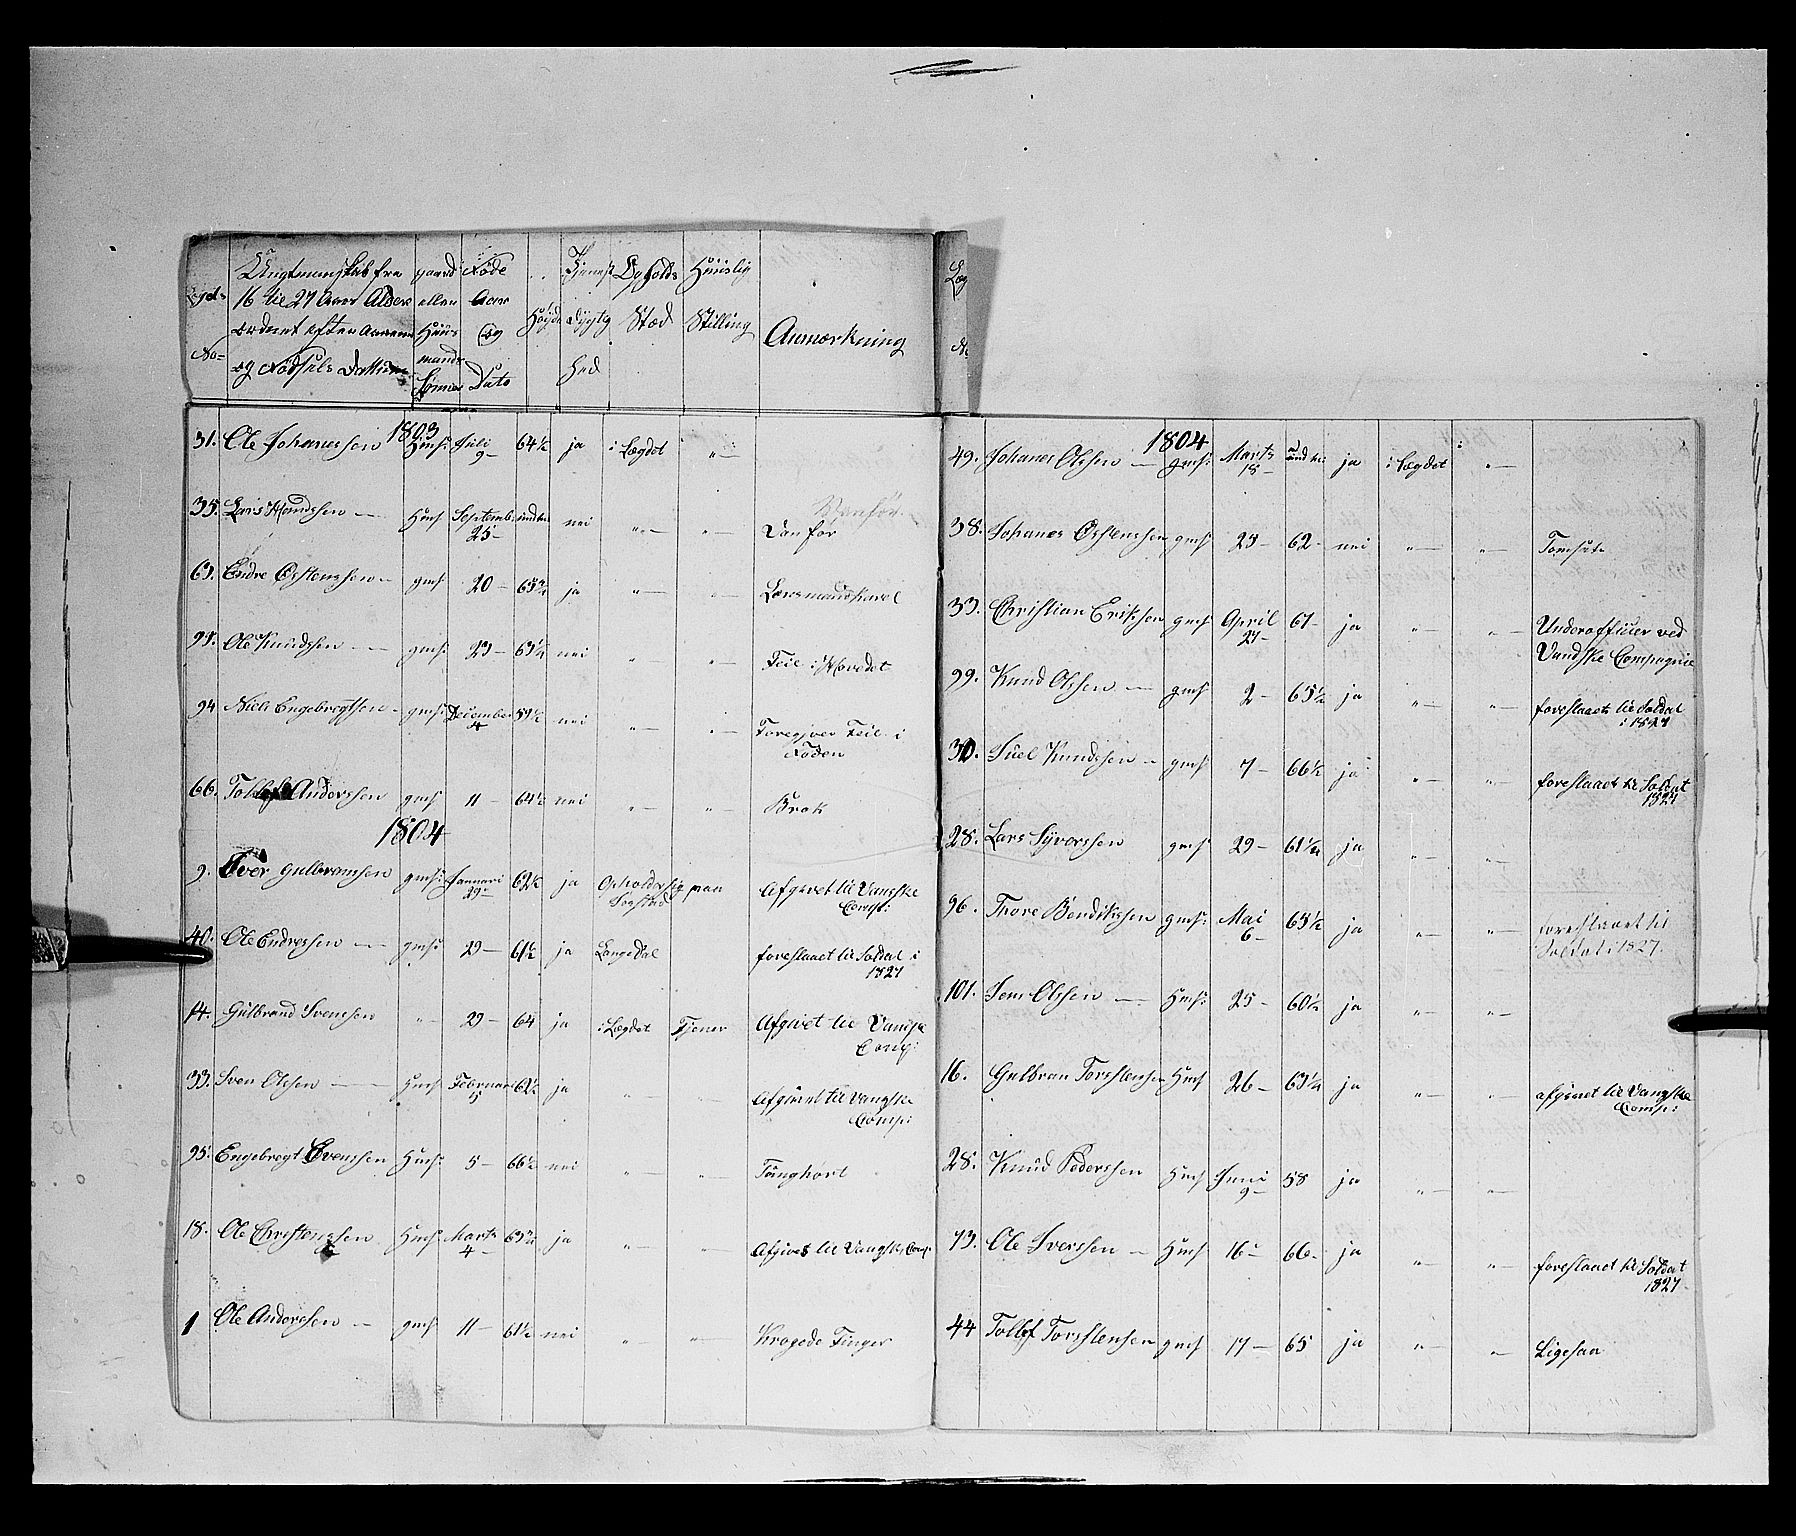 Lægds No= Ungtmanskab fra 16 til 27 Aars Alder ordnet efter Aarene og Fødsels Datterne gaard eller Huus mands Sønner Føde Aar og Dato Høyde Tjeneste Dygtig hed Opholds Sted Huuslig Stilling Anmærkning
1803
31. Ole Johanessen Hmsf Juli 9– 64½ ja i Lægdet "–
35. Lars Knudssen — Hmsf Septemb: 25– nei "– "– Vanfør
63. Endre Østenssen — gmsf 20 – ja "– "– Lænsmandskarel
Ole Knudssen — gmsf 23 – nei "– "– Feil i Hovedet
94 Niels Engebregtsen – gmsf December 4 59½ nei "– "– Foregiver Feil i Foden
66. Anderssen gmsf 11 – 64½ nei "– "– Brok
1804
9. Iver Gulbransen gmsf: Januari 29– 62½ ja Opholder sig paa Afgivet til Vangske Comp:
40. Ole Endressen — gmsf 29 – 61½ ja Langedal foreslaaet til Soldat i 1827
14. Gulbrand Svenssen "– 29 – 64 ja i Lægdet Tjener Afgivet til Vangske Comp:
33. Sven Olssen — Hmsf Februari 5 62½ ja "– "– Afgivet til Vangske Comp:
95. Engebregt Evenssen Hmsf: 5 – 66½ nei "– "– Tunghørt
18. Ole Christenssen Hmsf Marts 4 – ja "– "– Afgivet til Vangske Comp:
1 Ole Anderssen — gmsf 11 – 61½ nei "– "– Krogede Finger
Læg No
1804
49. Johanes Olssen — gmsf: Marts 18– ja i Lægdet "–
38. Johanes Østenssen gmsf 25 – 62 – nei "– "– Tomsute
33. Christian Erikssen gmsf April 27– 67 – ja "– "– Underofficier ved Vandske Compagnie
99. Knud Olssen — gmsf 2 – 65½ ja "– "– foreslaaet til Soldat i 1827
30. Juel Knudssen — gmsf 7 – 66½ ja "– "– foreslaaet til Soldat 1827
28. Lars Syverssen gmsf 29 – ja "– "–
96. Thore Bendikssen gmsf: Mai 6– 65½ ja "– "– foreslaaet til Soldat i 1827.
101. Jens Olssen — Hmsf: 25 – 60½ ja "– "–
16. Gulbran Torstensen Hmsf 26 – ja "– "– afgivet til Vangske Comp:
28. Knud Pederssen Hmsf Juni 9– 58 ja "– "–
73. Ole Iverssen — Hmsf 16 – 66 – ja "– "– foreslaaet til Soldat 1827
44 Tollef Torstensen gmsf 17 – 65 ja "– "– Ligesaa